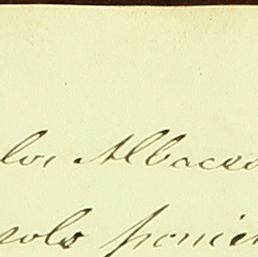 los Albacea
solo ponien